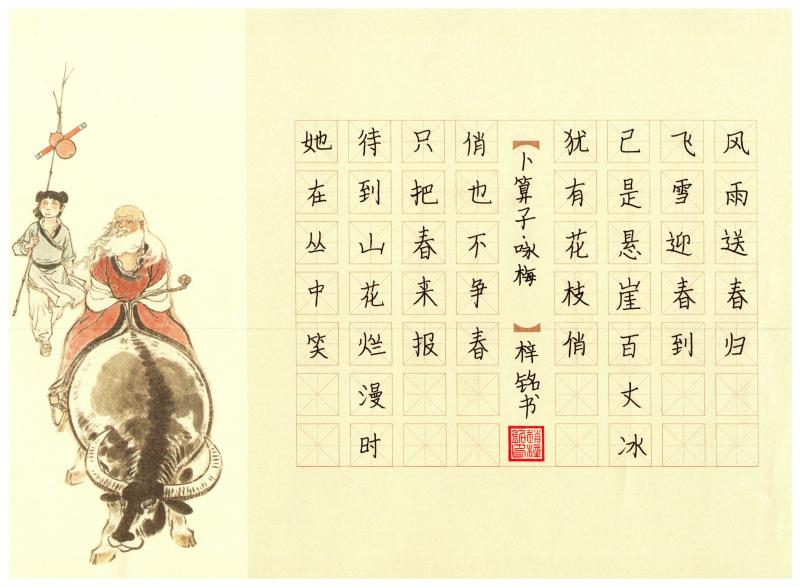 风雨送春归
飞雪迎春到
已是悬崖百丈冰
犹有花枝俏
【卜算子咏梅】梓铭书
俏也不争春
只把春来报
待到山花烂漫时
她在丛中笑